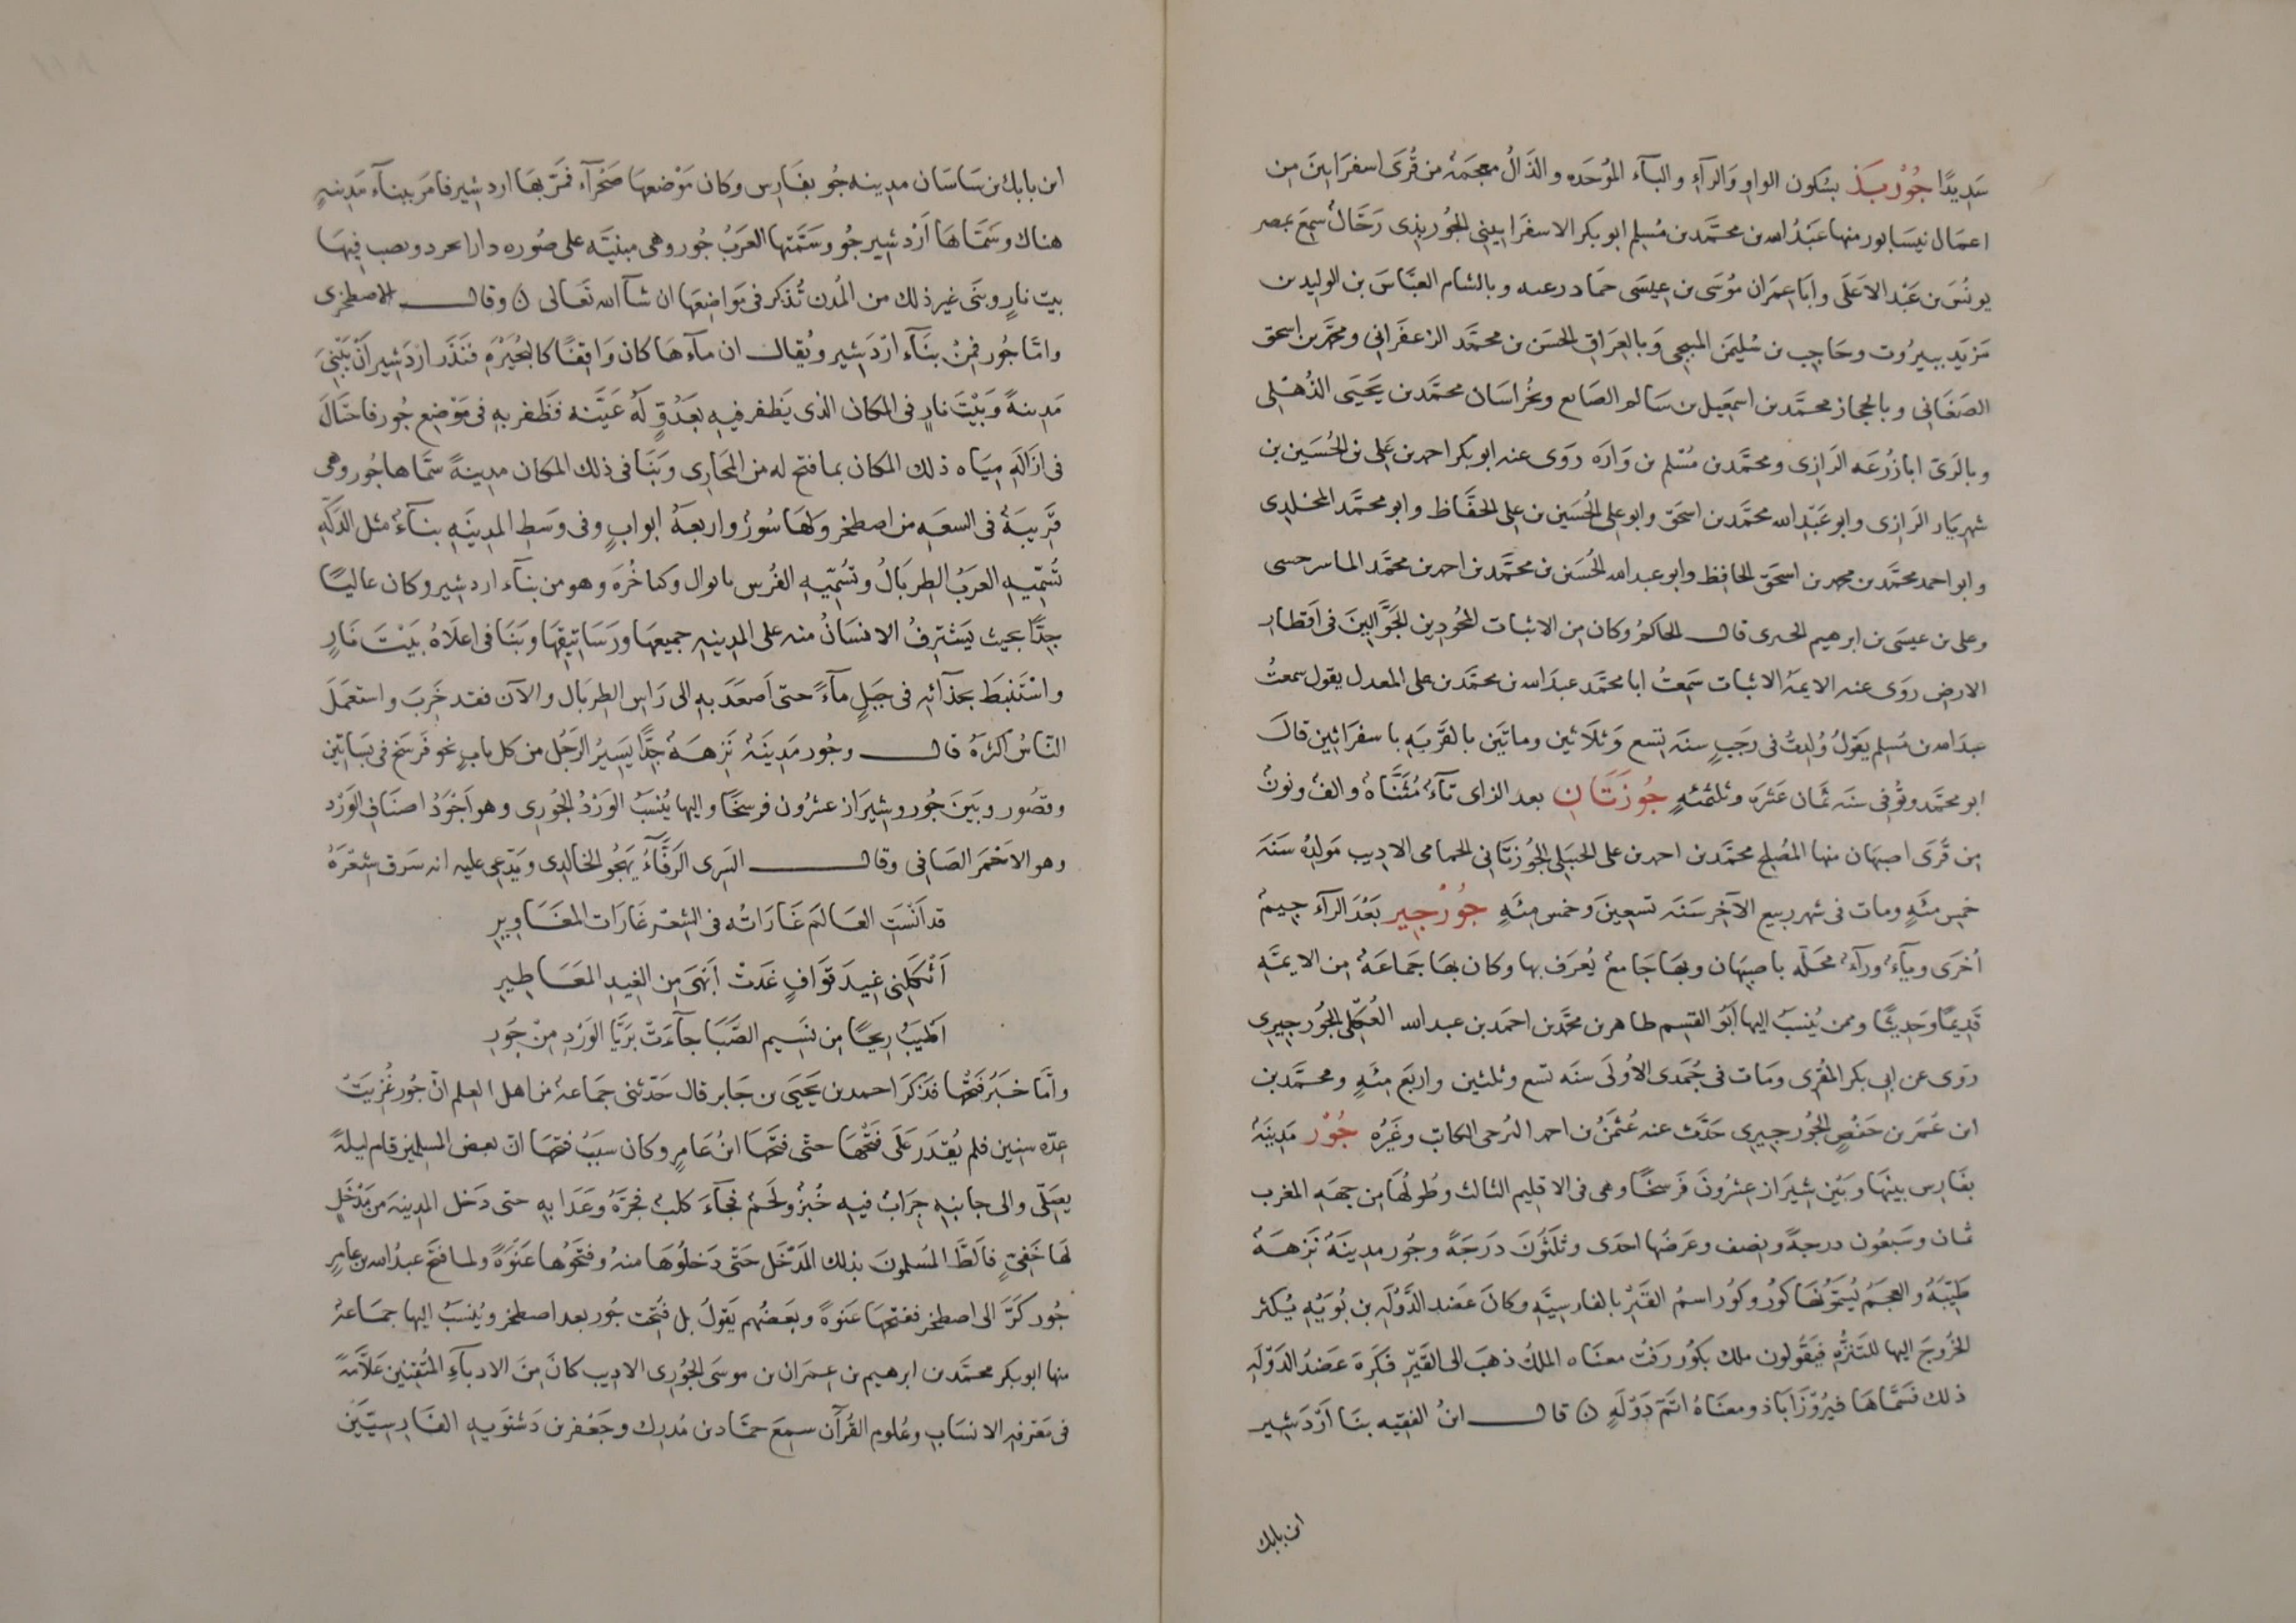 سَدِيدًا جُوْرْبَذ بسُكون الواو وَالرآءِ والبآء الموُحَده والذَالُ معجَمَة من قُرَى اسفرَايِنَ مِن
اعمَال نيسَابور منها عَبْدُ الله بن محمَّد بن مُسْلِم ابو بكر الاسفرَايينِى الجُوربَذِى رَحَالٌ سمِعَ بمصر
يونُسَ بن عَبْد الاَعلَى وابَا عِمرَان مُوسَى بن عِيسَى حمَاد زغبه وبالشام العبَّاسَ بن الوليد بن
مَزيَد ببيرُوت وحَاجِب بن سُلِيمَن المنبجى وَبالعِرَاقِ الحسَن بن محمَّد الزعفَرَانِى ومحمَّد بن اسحَق
الصَغَانِى وبالحجاز محمَّد بن اسمِعيل بن سَالم الصَايع وبخُراسَان محمَّد بن يَحيَى الذُهلِى
وبالرَىّ ابا زُرعَه الرَازِى ومحمَّد بن مُسْلم بن وَارَه روَى عنه ابو بكر احمد بن عَلِى بن الحُسَين بن
شهريَار الرَازِى وابو عَبْدِ الله محمَّد بن اسحَق وابو على الحُسَين بن على الحفَّاظ وابو محمَّد المخلدى
وابو احمد محمَّد بن محمد بن اسحَق الحَافِظ وابو عبد الله الحُسَين بن محمَّد بن احمد بن محمَّد الماسرجسى
وعلى بن عيسَى بن ابرهيم الحيرى قال الحاكمُ وكان مِن الاثبات المجُودِين الجَوَّالِينَ فى اَقطار
الارضِ روَى عنه الايمَة الاثبات سَمِعتُ ابا محمَّد عبدَ الله بن محمَّد بن على المعدل يقول سمعتُ
عبدَ الله بن مُسلِم يقوُلُ وُلِدتُ فى رَجَبٍ سنَة تِسع وَثلَاثين وماتَين بالقَريَةِ باسفرَائين قالَ
ابو محمَّد وتوُفّى سنَه ثمَان عَشَرَة وثلثمئهٍ جُوزَتَان بعد الزاى تآءُ مُثَنَّاةٌ والف ونونٌ
مِن قُرَى اصبهَان منها المُصْلح محمَّد بن احمد بن على الحنبَلِى الجُوزتَانِى الحمامى الاديب مَولِدُه سَنَة
خمِس مئَهٍ ومات فى شهر ربيع الآخِر سَنَه تسعِينَ وخمس مِئَهٍ جُورجِير بَعْدَ الرآء جيمٌ
اُخرَى ويآءٌ ورآءٌ محَلَّه باصبِهَان وبهَا جَامعٌ يُعرَف بها وكان بها جَماعَةٌ مِن الايمَّهِ
قَدِيمًا وحَدِيثًا وممن يُنسبُ اليها اَبوُ القسِم طاهر بن محمَّد بن احمَد بن عبد الله العُكلِى الجُورجِيرِى
روَى عن ابى بكر المقرِى ومَات فى جُمَدى الاوُلَى سنَه تسع وثلثين واربَع مِئَهٍ ومحمَّد بن
ابن عُمَر بن حَفصٍ الجُورجِيرِى حَدَّث عنه عُثمَنُ بن احمد البُرجى الكاتب وغَيرُه جُوْر مَدِينَةٌ
بفَارس بينهَا وبَيْن شِيرَاز عِشرُونَ فَرسَخًا وهى فى الاقليم الثالث وطُولُهَا مِن جِهَةِ المغرب
ثمان وسَبعُون درجةً ونِصف وعَرضَها احدَى وثلثُونَ دَرَجَةً وجُور مدِينَةٌ نَزهَةٌ
طَيّبَةٌ والعجمُ يُسَمُّونَهَا كوُر وكوُر اسمُ القَبْرِ بالفارسِيَّهِ وكانَ عَضد الدَّوْلَهِ بن بُوَيْهِ يُكثر
الخرُوجَ اليها للتنزّهِ فيَقُولون ملك بكوُر رَفْت معنَاه الملكُ ذهبَ الى القَبْرِ فكَرِهَ عَضدُ الدَوْلَهِ
ذلك فسَمَّاهَا فيرُوْزَآبَاذ ومعنَاهُ اتَمَّ دَوْلَهٍ ن قال ابنُ الفقِيه بنَا اَرْدَشِير
ابن بابك
ابن بابك بن سَاسَان مدِينه جُور بفَارس وكان مَوْضعهَا صَحْرَآءَ فمَرّ بهَا اردشِير فامرَ ببنآء مَدِينهٍ
هناك وسَمَّاهَا اَرْدشِير جُو وسَمَّتها العَربُ جُور وهى مبنيَّه على صُوره دارابجرد ونصب فِيهَا
بيت نارٍ وبنَى غير ذلك من المُدن تُذكر فى مَوَاضِعهَا ان شآ الله تعَالى ن وقال الاصطخرى
وامّا جُور فمِنْ بنَآء اَرْدَشِير ويُقال ان مآءَهَا كان وَاقِفًا كالبُحَيْرَهِ فنَذَر اَرْدَشِير اَنْ يَبْنِىَ
مَدِينةً وَبَيْتَ نارٍ فى المكان الذى يَظفر فيهِ بعَدُوٍّ لَهُ عَيَّنه فظَفر بهِ فى مَوْضِع جُور فاحتَالَ
فى ازَالَهِ مِيَاه ذلك المكان بما فتح له من المجَارِى وبَنَا فى ذلك المكان مدِينةً سمَّاها جُور وهى
قَرِيبَةٌ فى السعَهِ من اصطخر ولهَا سُورٌ واربعَةُ ابوابٍ وفى وَسَطِ المدِينَهِ بنآءٌ مثل الدَكّهِ
تُسمّيهِ العرَبُ الطِربَالُ وتُسمّيهِ الفُرس بايوال وكناخُرَه وهو من بنآء اردشِير وكان عاليًا
جِدًّا بحيث يَشترِفُ الانسَانُ منه على المدِينهِ جميعهَا ورَسَاتيقهَا وبَنَا فى اعلَاهُ بَيْتَ نَارٍ
واسْتَنبَطَ بحذآئهِ فى جبَلٍ مآءً حتى اَصعَدَ بهِ الى رَاسِ الطِربَال والآن فقد خَرِبَ واستعمَلَ
النّاسُ اكثرَهُ قال وجُور مَدِينَةٌ نَزِهَةٌ جِدًّا يَسِيرُ الرَجُل من كل بابٍ نحو فَرسَخ فى بَسَاتين
وقصُور وبَينَ جُور وشِيرَاز عشرُون فرسخًا واليها يُنسَبُ الوَرْدُ الجُورِى وهو اَجْوَدُ اصنَافِ الوَرْد
وهو الاَحْمَر الصَافِى وقال السَرِى الرَفَّآءُ يهجُو الخالدِى ويَدّعِى عليه انه سَرَق شِعْرَهُ
قد اَنْسَتِ العَالَم غَارَاتُه فى الشِعْر غَارَات المغَاوِيرِ
اَثْكَلَنِى غِيدَ قوَافٍ غَدَتْ اَبْهَى مِن الغِيدِ المَعَاطِيرِ
اَطيَبُ رِيحًا مِن نَسِيم الصَّبَا جآءَتْ بَريَّا الوَرْدِ مِنْ جُورِ
وامَّا خبَرُ فَتْحُها فذَكَرَ احمد بن يَحيَى بن جَابر قال حَدّثنى جَماعةٌ من اهل العِلم انّ جُور غُزِيَتْ
عِدّه سِنين فلم يُقدَر عَلَى فَتحِهَا حتّى فتَحهَا ابنُ عَامِرٍ وكان سبَبُ فتحِهَا انّ بعض المسلِمين قام ليلةً
يصَلّى والى جانبِهِ جِرَابٌ فيهِ خُبزٌ ولَحمٌ فجآءَ كلبٌ فجَرَّهُ وَعَدَا بهِ حتى دَخل المدِينهَ من مَدْخَلٍ
لهَا خَفِىٍّ فاَلظَّ المُسلِمونَ بذلك المَدْخَل حَتّى دَخلُوهَا منهُ وفتَحوُها عَنْوَةً ولما فتحَ عبدُ الله بن عامِرٍ
جُور كرَّ الى اصطخر ففتحهَا عَنوَةً وبَعضُهم يَقولُ بل فُتِحَت جُور بعد اصطخر ويُنسَبُ اليها جمَاعةٌ
منها ابو بكر محمَّد بن ابرهِيم بن عِمرَان بن موسَى الجُورِى الاديب كانَ مِنَ الادبآءِ المُتقِنين عَلَّامَةً
فى مَعْرفهِ الانسَابِ وعُلومِ القُرآن سمِعَ حمَّاد بن مُدرك وجَعْفر بن دَرَستَوَيهِ الفَارِسيَّيْن